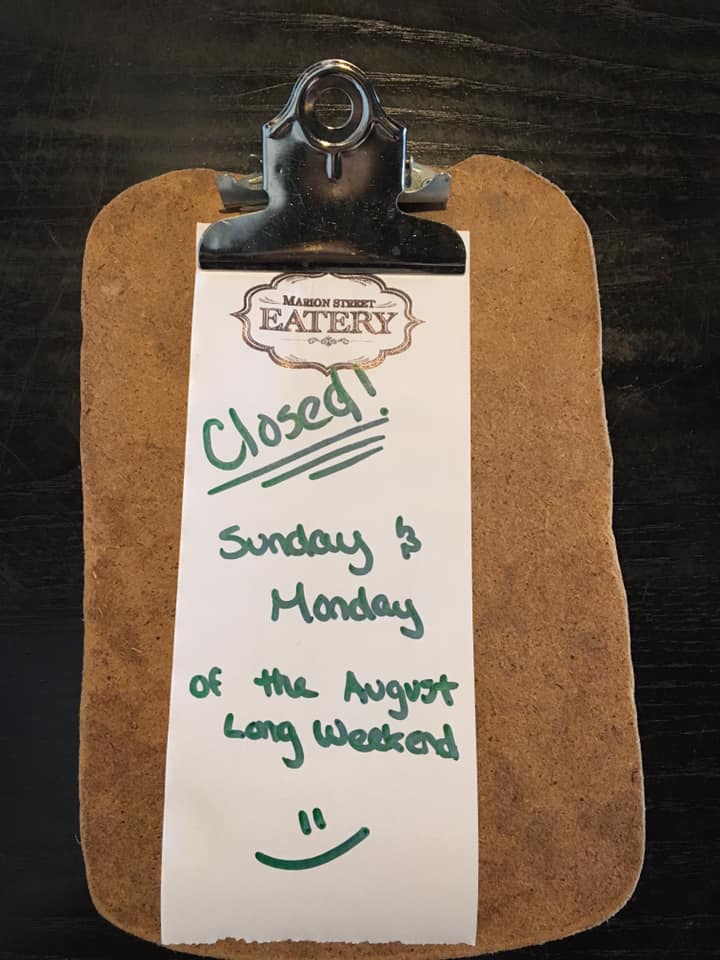 MARION STREET
EATERY
Closed!
Sunday &
Monday
of the August
Long Weekend